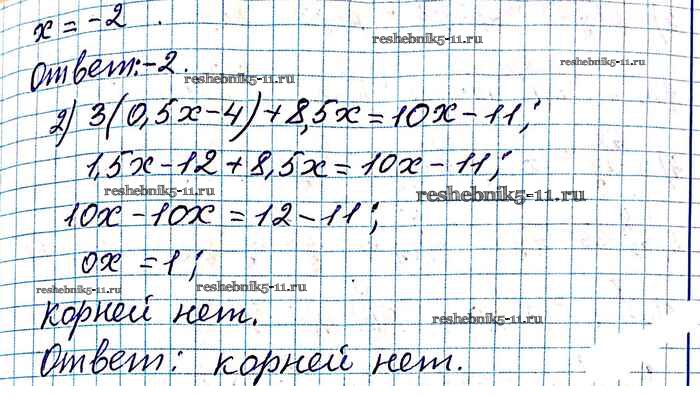 x = -2 .
Ответ: -2.
2) 3(0,5x-4)+8,5x=10x-11;
1,5x-12+8,5x=10x-11;
10x-10x=12-11;
0x=1;
корней нет.
Ответ: корней нет.
reshebnik5-11.ru
reshebnik5-11.ru
reshebnik5-11.ru
reshebnik5-11.ru
reshebnik5-11.ru
reshebnik5-11.ru
reshebnik5-11.ru
reshebnik5-11.ru